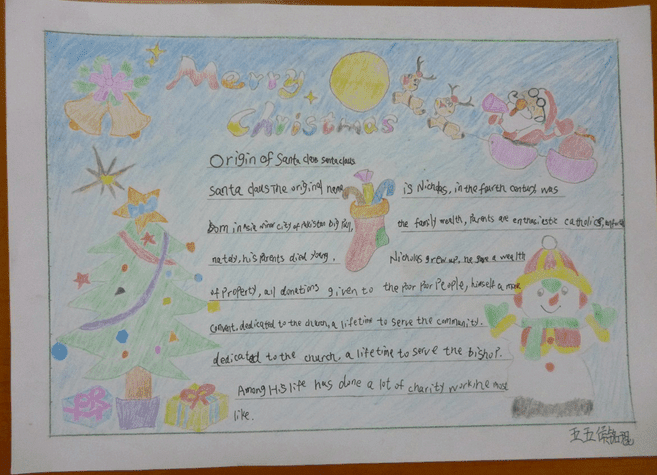 Merry
Christmas
Origin of Santa claus santaclaus
santa claus The original name is Nicholas, in the fourth century was
Born in Asia minor city of the family wealth, parents are enthusiastic catholics,
nately, his parents died young. Nicholas grew up, he gave a wealth
of property, all donations given to the poor poor People, himself a
convent, dedicated to the church, a lifetime to serve the community.
dedicated to the church. a lifetime to serve the bishop.
Among His life has done a lot of charity work, he most
like.
五五